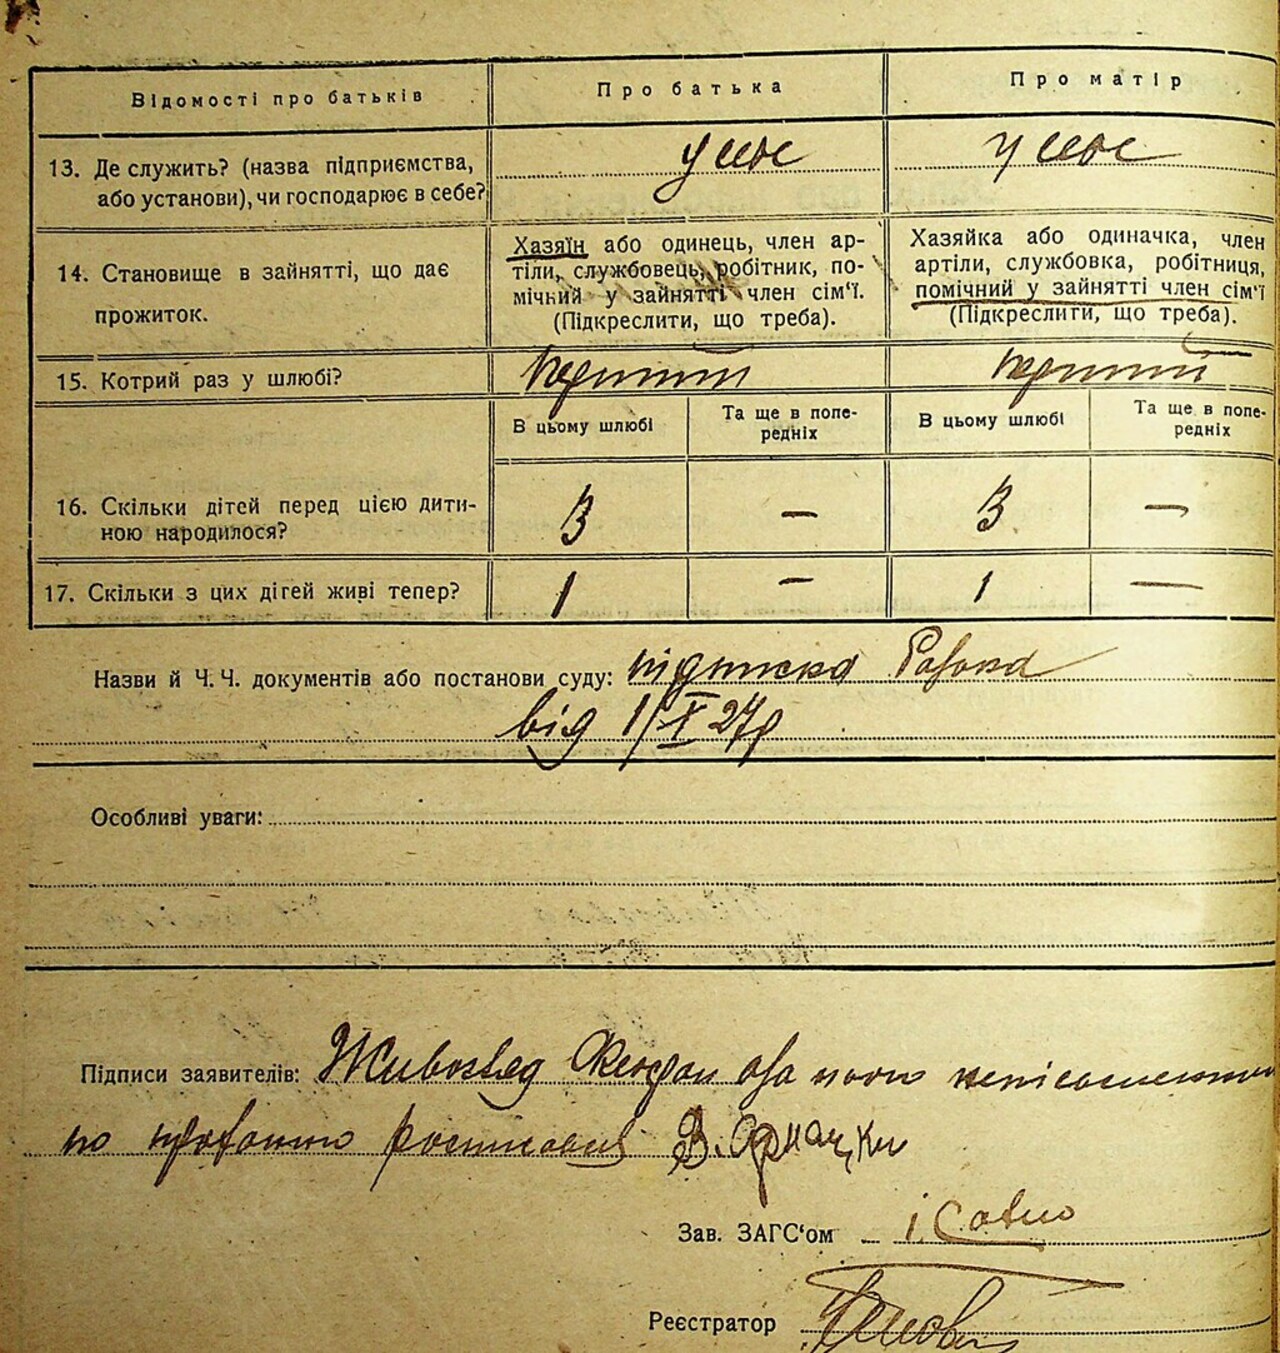 Відомості про батьків
Про батька
Про матір
13. Де служить? (назва підприємства,
або установи), чи господарює в себе?
у себе
у себе
14. Становище в зайнятті, що дає
прожиток.
Хазяїн або одинець, член ар-
тіли, службовець, робітник, по-
мічний у зайнятті член сім'ї.
(Підкреслити, що треба).
Хазяйка або одиначка, член
артіли, службовка, робітниця,
помічний у зайнятті член сім'ї
(Підкреслити, що треба).
15. Котрий раз у шлюбі?
перший
перший
В цьому шлюбі
Та ще в попе-
редніх
В цьому шлюбі
Та ще в попе-
редніх
16. Скільки дітей перед цією дити-
ною народилося?
3
—
3
—
17. Скільки з цих дігей живі тепер?
1
—
1
—
Назви й Ч. Ч. документів або постанови суду: підписка
від 1/X 27р
Особливі уваги:
Підписи заявителів:
по
Зав. ЗАГС'ом
Реєстратор